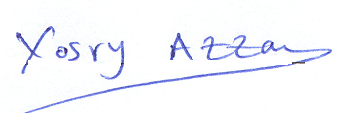 Yosry Azzam